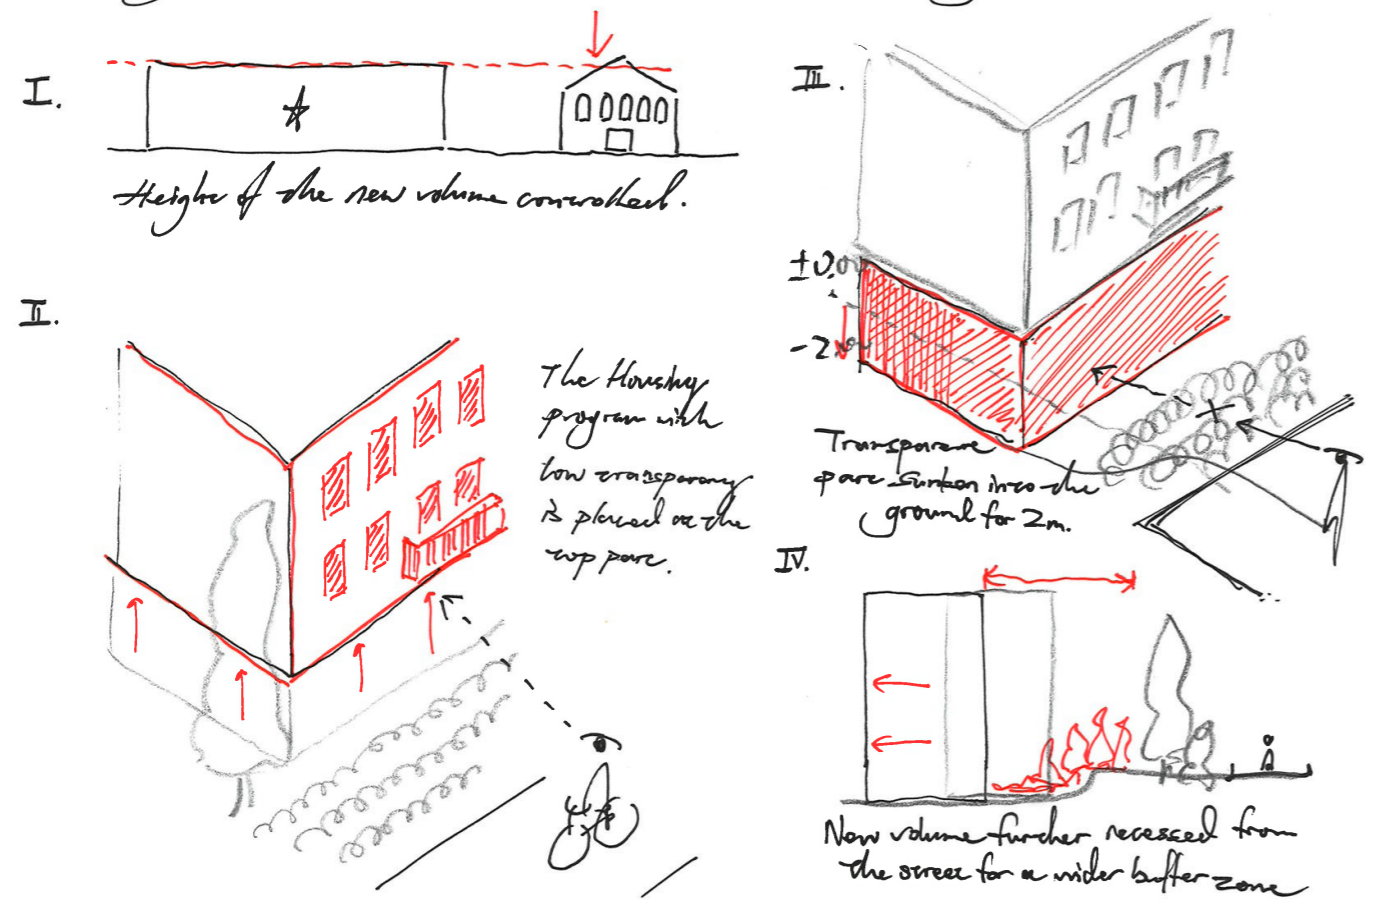 I.
Height of the new volume controlled.
II.
The Housing
program with
low transparency
is placed on the
top part.
III.
±0.00
-2.00
Transparent
part sunken into the
ground for 2m.
IV.
New volume further recessed from
the street for a wider buffer zone